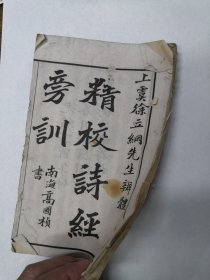 上虞徐立綱先生輯體
精校詩經
旁訓
南海高國楨
書